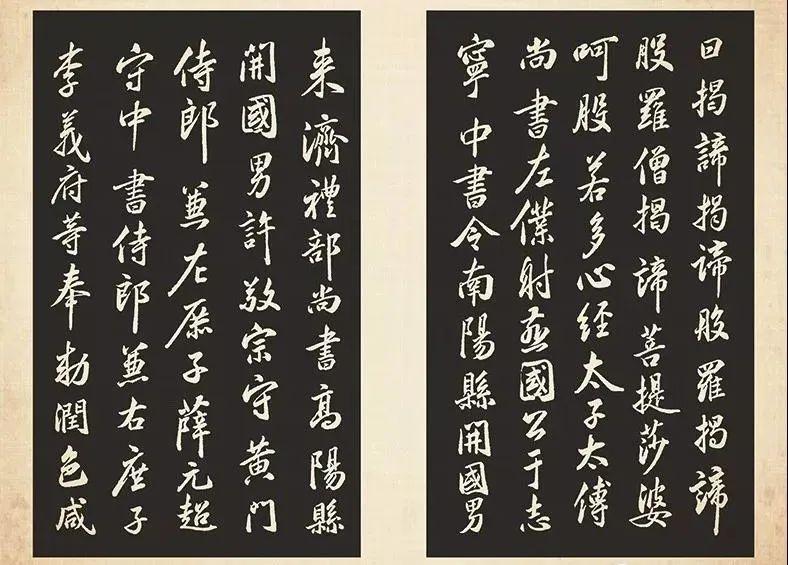 曰揭諦揭諦般羅揭諦
般羅僧揭諦菩提莎婆
呵般若多心經太子太傅
尚書左僕射燕國公于志
寧中書令南陽縣開國男
来濟禮部尚書高陽縣
開國男許敬宗守黄門
侍郎兼左庶子薛元超
守中書侍郎兼右庶子
李義府等奉勑潤色咸